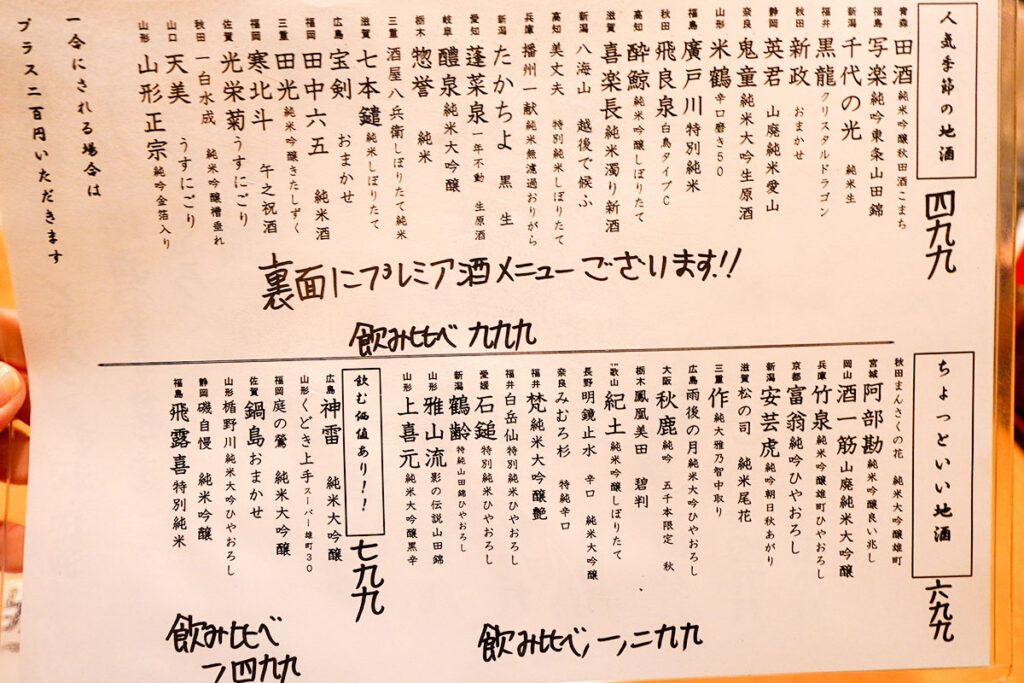 人気季節の地酒 四九九
青森 田酒 純米吟醸秋田酒こまち
福島 写楽 純吟東条山田錦
新潟 千代の光 純米生
福井 黒龍 クリスタルドラゴン
秋田 新政 おまかせ
静岡 英君 山廃純米愛山
奈良 鬼童 純米大吟生原酒
山形 米鶴 辛口磨き50
福島 廣戸川 特別純米
秋田 飛良泉 白鳥タイプC
高知 酔鯨 純米吟醸しぼりたて
滋賀 喜楽長 純米濁り新酒
新潟 八海山 越後で候ふ
高知 美丈夫 特別純米しぼりたて
兵庫 播州一献 純米無濾過おりがら
新潟 たかちよ 黒 生
愛知 蓬莱泉 一年不動 生原酒
岐阜 醴泉 純米大吟醸
栃木 惣誉 純米
三重 酒屋八兵衛 しぼりたて純米
滋賀 七本鎗 純米しぼりたて
広島 宝剣 おまかせ
福岡 田中六五 純米酒
三重 田光 純米吟醸きたしずく
福岡 寒北斗 午之祝酒
佐賀 光栄菊 うすにごり
秋田 一白水成 純米吟醸槽垂れ
山口 天美 うすにごり
山形 山形正宗 純吟金箔入り
一合にされる場合は
プラス二百円いただきます
裏面にプレミア酒メニューございます!!
飲み比べ 九九九
ちょっといい地酒 六九九
秋田 まんさくの花 純米大吟醸雄町
宮城 阿部勘 純米吟醸良い兆し
岡山 酒一筋 山廃純米大吟醸
兵庫 竹泉 純米吟醸雄町ひやおろし
京都 富翁 純吟ひやおろし
新潟 安芸虎 純吟朝日秋あがり
滋賀 松の司 純米尾花
三重 作 純大雅乃智中取り
広島 雨後の月 純米大吟ひやおろし
大阪 秋鹿 純吟 五千本限定 秋
栃木 鳳凰美田 碧判
和歌山 紀土 純米吟醸しぼりたて
長野 明鏡止水 辛口 純米大吟醸
奈良 みむろ杉 特純辛口
福井 梵 純米大吟醸艶
福井 白岳仙 特別純米ひやおろし
愛媛 石鎚 特別純米ひやおろし
新潟 鶴齢 特純山田錦ひやおろし
山形 雅山流 影の伝説山田錦
山形 上喜元 純米大吟醸黒辛
飲み比べ 一,二九九
飲む価値あり!! 七九九
広島 神雷 純米大吟醸
山形 くどき上手 スーパー雄町30
福岡 庭の鶯 純米大吟醸
佐賀 鍋島 おまかせ
山形 楯野川 純米大吟ひやおろし
静岡 磯自慢 純米吟醸
福島 飛露喜 特別純米
飲み比べ
一,四九九